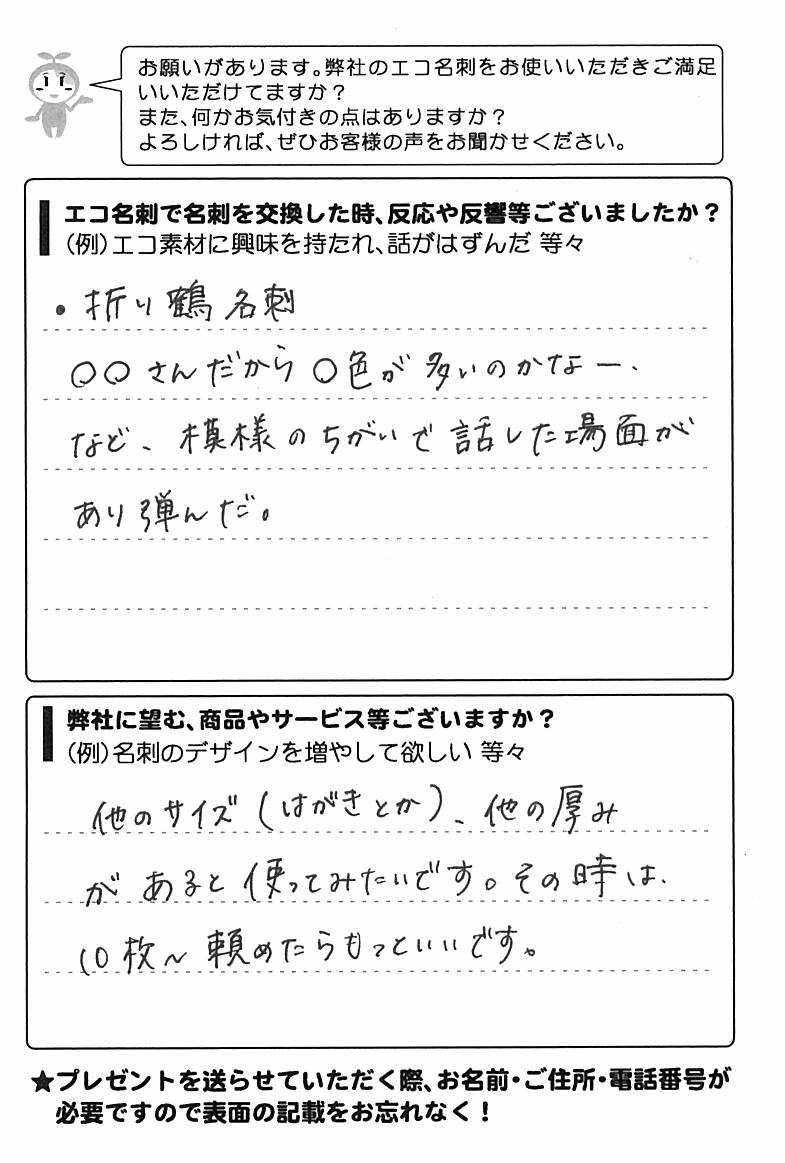 お願いがあります。弊社のエコ名刺をお使いいただきご満足
いいただけてますか？
また、何かお気付きの点はありますか？
よろしければ、ぜひお客様の声をお聞かせください。
エコ名刺で名刺を交換した時、反応や反響等ございましたか？
（例）エコ素材に興味を持たれ、話がはずんだ 等々
・折り鶴名刺
〇〇さんだから〇色が多いのかなー、
など、模様のちがいで話した場面が
あり弾んだ。
弊社に望む、商品やサービス等ございますか？
（例）名刺のデザインを増やして欲しい 等々
他のサイズ（はがきとか）、他の厚み
があると使ってみたいです。その時は、
10枚～頼めたらもっといいです。
★プレゼントを送らせていただく際、お名前・ご住所・電話番号が
必要ですので表面の記載をお忘れなく！